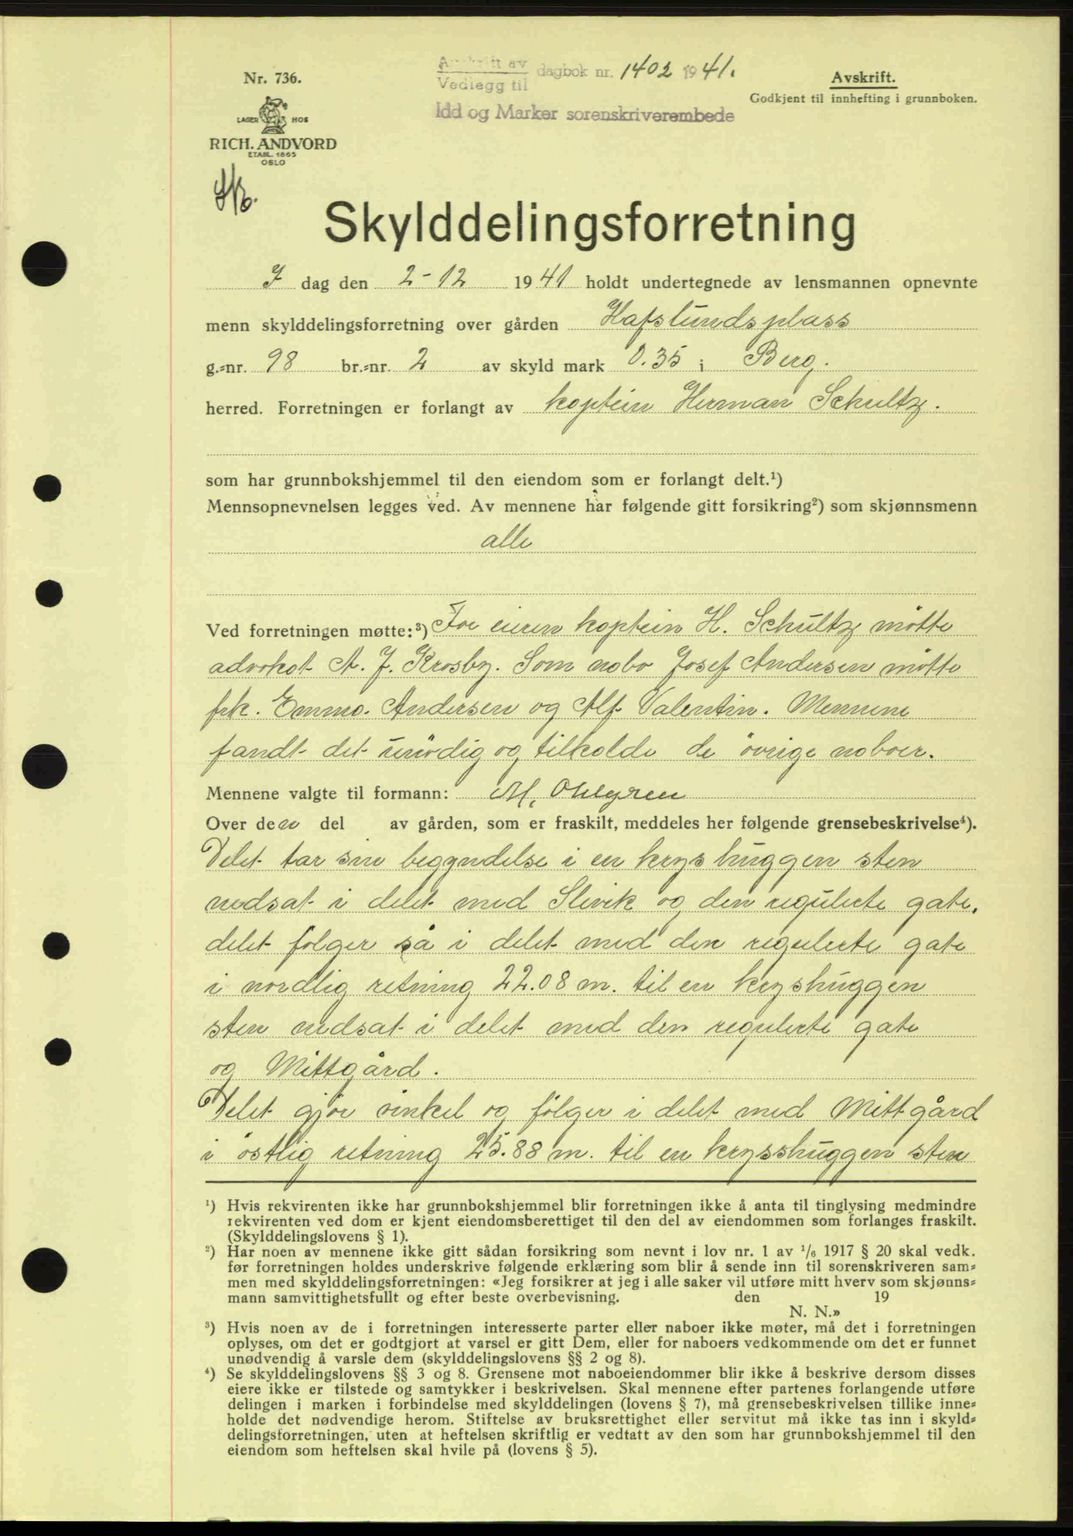 Nr. 736.
LAGER HOS
RICH. ANDVORD
ETABL. 1865
OSLO
Avskrift av
Vedlegg til
dagbok nr. 1402 1941.
Idd og Marker sorenskriverembede
Avskrift.
Godkjent til innhefting i grunnboken.
Skylddelingsforretning
I dag den 2-12 1941 holdt undertegnede av lensmannen opnevnte
menn skylddelingsforretning over gården Hafslundsplass
g.=nr. 98 br.=nr. 2 av skyld mark 0.35 i Berg.
herred. Forretningen er forlangt av kaptein Herman Schultz.
som har grunnbokshjemmel til den eiendom som er forlangt delt.¹)
Mennsopnevnelsen legges ved. Av mennene har følgende gitt forsikring²) som skjønnsmenn
alle
Ved forretningen møtte:³) For eieren kaptein H. Schultz møtte
advokat A. J. Krosby. Som nabo Josef Andersen møtte
frk. Emma Andersen og Alf Valentin. Mennene
fandt det unødig og tilkalde de øvrige naboer.
Mennene valgte til formann: M. Ohlgren
Over den del av gården, som er fraskilt, meddeles her følgende grensebeskrivelse⁴).
Delet tar sin begyndelse i en kryshuggen sten
nedsat i delet med Slevik og den regulerte gate,
delet følger så i delet med den regulerte gate
i nordlig retning 22.08 m. til en kryshuggen
sten nedsat i delet med den regulerte gate
og Mittgård.
Delet gjør vinkel og følger i delet med Mittgård
i østlig retning 25.88 m. til en krysshuggen sten
¹) Hvis rekvirenten ikke har grunnbokshjemmel blir forretningen ikke å anta til tinglysing medmindre
rekvirenten ved dom er kjent eiendomsberettiget til den del av eiendommen som forlanges fraskilt.
(Skylddelingslovens § 1).
²) Har noen av mennene ikke gitt sådan forsikring som nevnt i lov nr. 1 av ¹/₆ 1917 § 20 skal vedk.
før forretningen holdes underskrive følgende erklæring som blir å sende inn til sorenskriveren sam=
men med skylddelingsforretningen: «Jeg forsikrer at jeg i alle saker vil utføre mitt hverv som skjønns=
mann samvittighetsfullt og efter beste overbevisning. den 19
N. N.»
³) Hvis noen av de i forretningen interesserte parter eller naboer ikke møter, må det i forretningen
oplyses, om det er godtgjort at varsel er gitt Dem, eller for naboers vedkommende om det er funnet
unødvendig å varsle dem (skylddelingslovens §§ 2 og 8).
⁴) Se skylddelingslovens §§ 3 og 8. Grensene mot naboeiendommer blir ikke å beskrive dersom disses
eiere ikke er tilstede og samtykker i beskrivelsen. Skal mennene efter partenes forlangende utføre
delingen i marken i forbindelse med skylddelingen (lovens § 7), må grensebeskrivelsen tillike inne=
holde det nødvendige herom. Stiftelse av bruksrettighet eller servitut må ikke tas inn i skyld=
delingsforretningen, uten at heftelsen skriftlig er vedtatt av den som har grunnbokshjemmel til den
eiendom som heftelsen skal hvile på (lovens § 5).